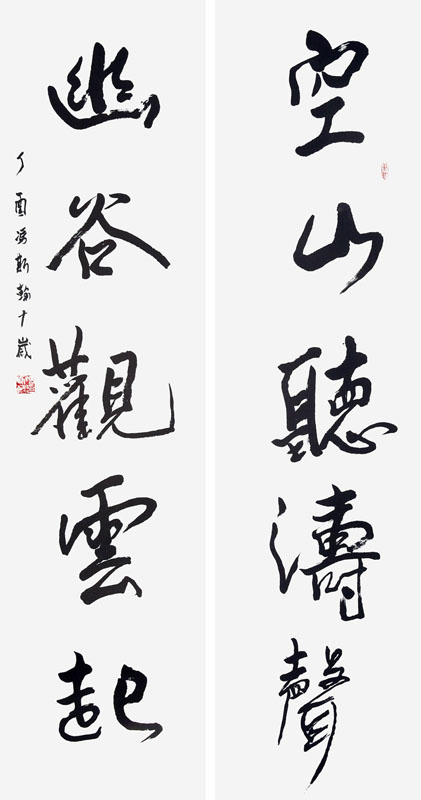 空山聽濤聲
幽谷觀雲起
丁酉馮斯翰十歲